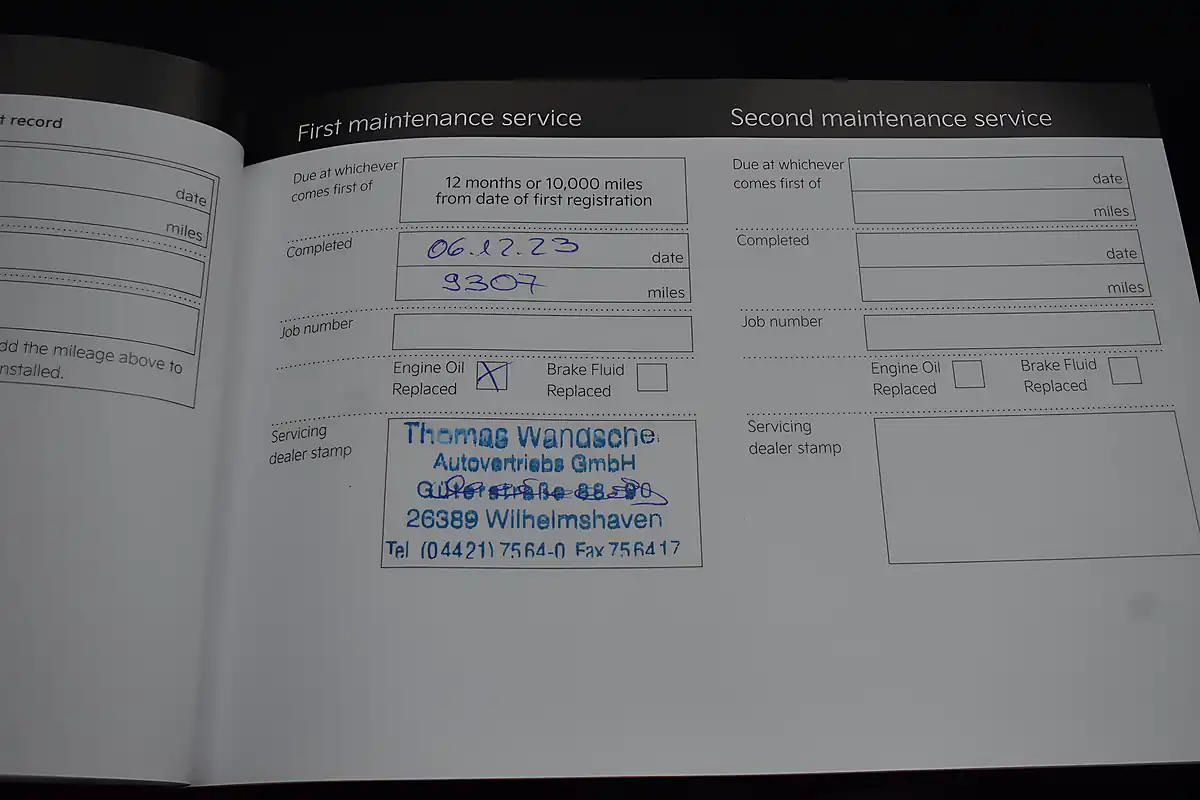 t record
date
miles
dd the mileage above to
nstalled.
First maintenance service
Due at whichever
comes first of
12 months or 10,000 miles
from date of first registration
Completed
06.12.23
date
9307
miles
Job number
Engine Oil
Replaced
Brake Fluid
Replaced
Servicing
dealer stamp
Thomas Wandsche
Autovertriebs GmbH
Güterstraße 88-90
26389 Wilhelmshaven
Tel (04421) 7564-0 Fax 756417
Second maintenance service
Due at whichever
comes first of
date
miles
Completed
date
miles
Job number
Engine Oil
Replaced
Brake Fluid
Replaced
Servicing
dealer stamp